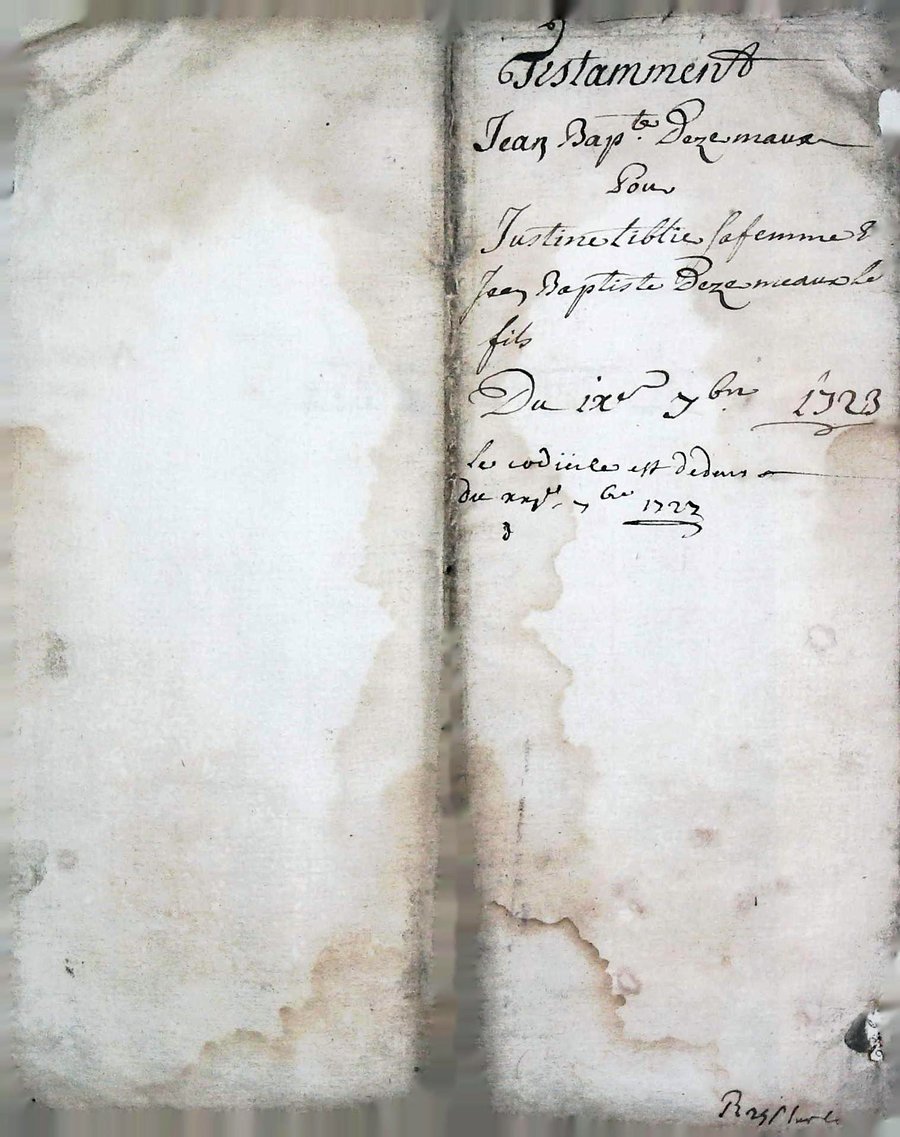 Testamment
Jean Bap.te Dezemaux
Pour
Justine Liblie sa femme &
Jean Baptiste Dezemeaux le
fils
Du ixe 7bre 1723
le codicile est dedens
du 7bre 1727